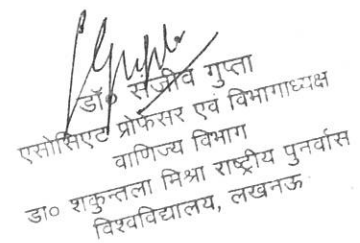 डॉ० संजीव गुप्ता
एसोसिएट प्रोफेसर एवं विभागाध्यक्ष
वाणिज्य विभाग
डा० शकुन्तला मिश्रा राष्ट्रीय पुनर्वास
विश्वविद्यालय, लखनऊ